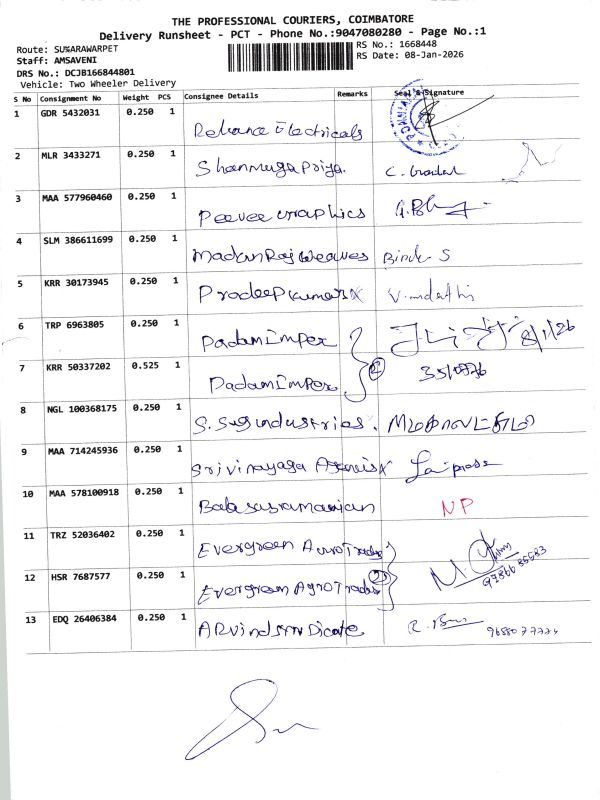 THE PROFESSIONAL COURIERS, COIMBATORE
Delivery Runsheet - PCT - Phone No.:9047080280 - Page No.:1
Route: SU%ARAWARPET
RS No.: 1668448
Staff: AMSAVENI
RS Date: 08-Jan-2026
DRS No.: DCJB166844801
Vehicle: Two Wheeler Delivery
S No Consignment No Weight PCS Consignee Details Remarks Seal & Signature
1 GDR 5432031 0.250 1 Reliance Electricals
2 MLR 3433271 0.250 1 Shanmuga Priya.
3 MAA 577960460 0.250 1 Peevee Graphics
4 SLM 386611699 0.250 1 Madan Raj Weaves Bindu S
5 KRR 30173945 0.250 1 Pradeep Kumar
6 TRP 6963805 0.250 1 Padam Impex 8/1/26
7 KRR 50337202 0.525 1 Padam Impex (2)
8 NGL 100368175 0.250 1 S.Sug industries.
9 MAA 714245936 0.250 1 Sri vinayaga Agencies
10 MAA 578100918 0.250 1 Balasubramanian NP
11 TRZ 52036402 0.250 1 Evergreen Agro Trades
12 HSR 7687577 0.250 1 Evergreen Agro Trades (2) 9786685683
13 EDQ 26406384 0.250 1 ARvind Syndicate